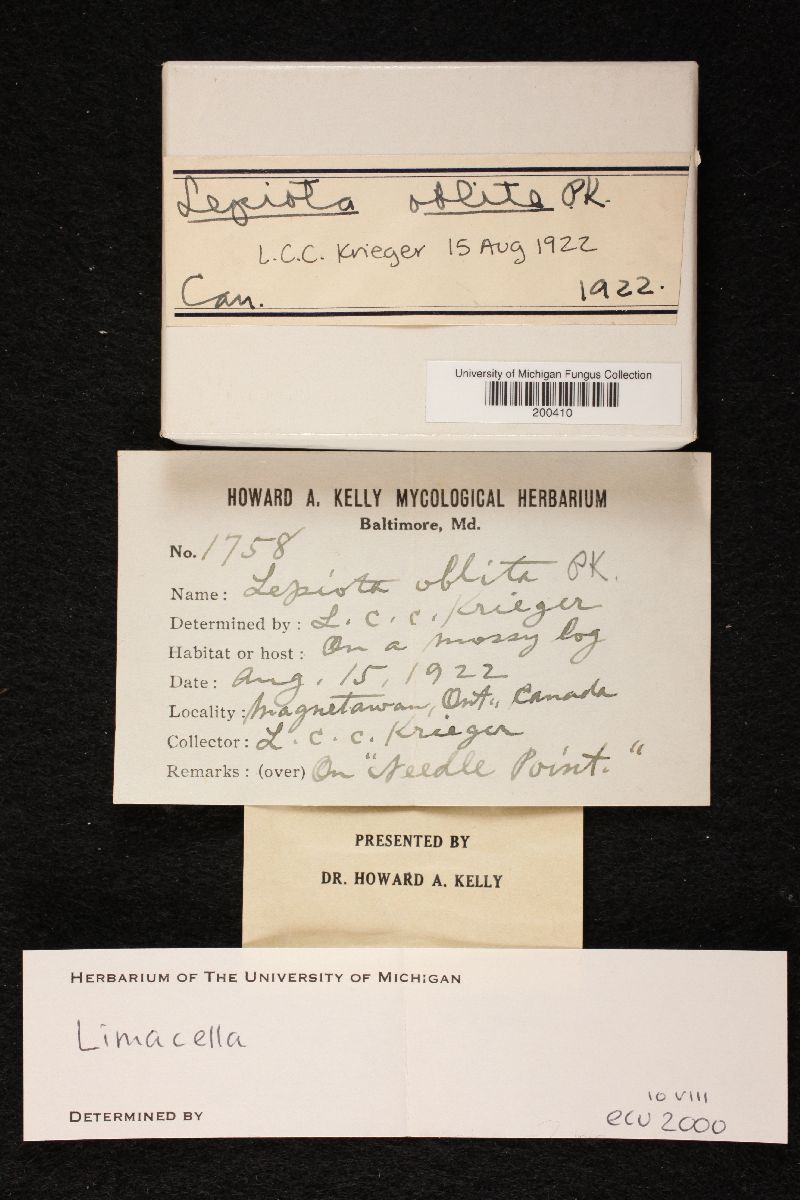 Lepiota oblita PK.
L.C.C. Krieger 15 Aug 1922
Can. 1922.
University of Michigan Fungus Collection
200410
HOWARD A. KELLY MYCOLOGICAL HERBARIUM
Baltimore, Md.
No. 1758
Name: Lepiota oblita PK.
Determined by: L. C. C. Krieger
Habitat or host: On a mossy log
Date: Aug. 15, 1922
Locality: Magnetawan, Ont., Canada
Collector: L. C. C. Krieger
Remarks: (over) On "Needle Point."
PRESENTED BY
DR. HOWARD A. KELLY
HERBARIUM OF THE UNIVERSITY OF MICHIGAN
Limacella
10 VIII
DETERMINED BY ecv 2000